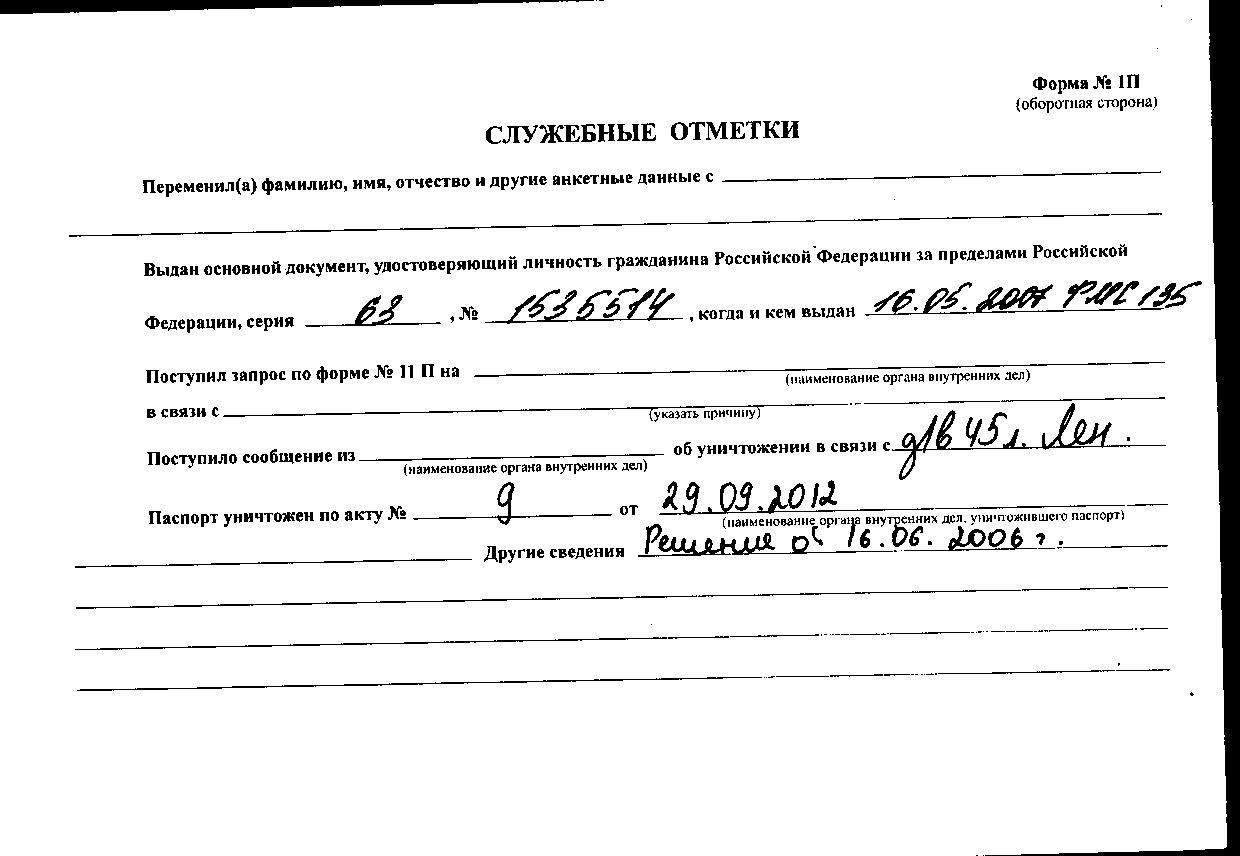 Форма № 1П
(оборотная сторона)
СЛУЖЕБНЫЕ ОТМЕТКИ
Переменил(а) фамилию, имя, отчество и другие анкетные данные с
Выдан основной документ, удостоверяющий личность гражданина Российской Федерации за пределами Российской
Федерации, серия 63 , № 1535514 , когда и кем выдан 16.05.2007 ФМС 135
Поступил запрос по форме № 11 П на
(наименование органа внутренних дел)
в связи с
(указать причину)
Поступило сообщение из об уничтожении в связи с 45 л.
(наименование органа внутренних дел)
Паспорт уничтожен по акту № 9 от 29.09.2012
(наименование органа внутренних дел, уничтожившего паспорт)
Другие сведения Решение от 16.06.2006 г.